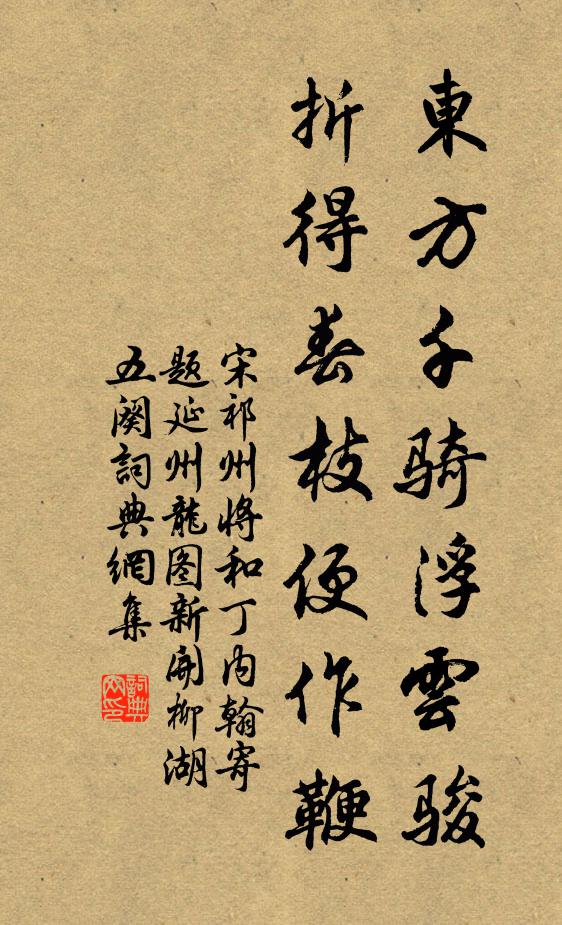 東方千骑浮雲骏
折得春枝便作鞭
宋祁州將和丁内翰寄
题延州龍图新開柳湖
五阕詞典網集
詞典